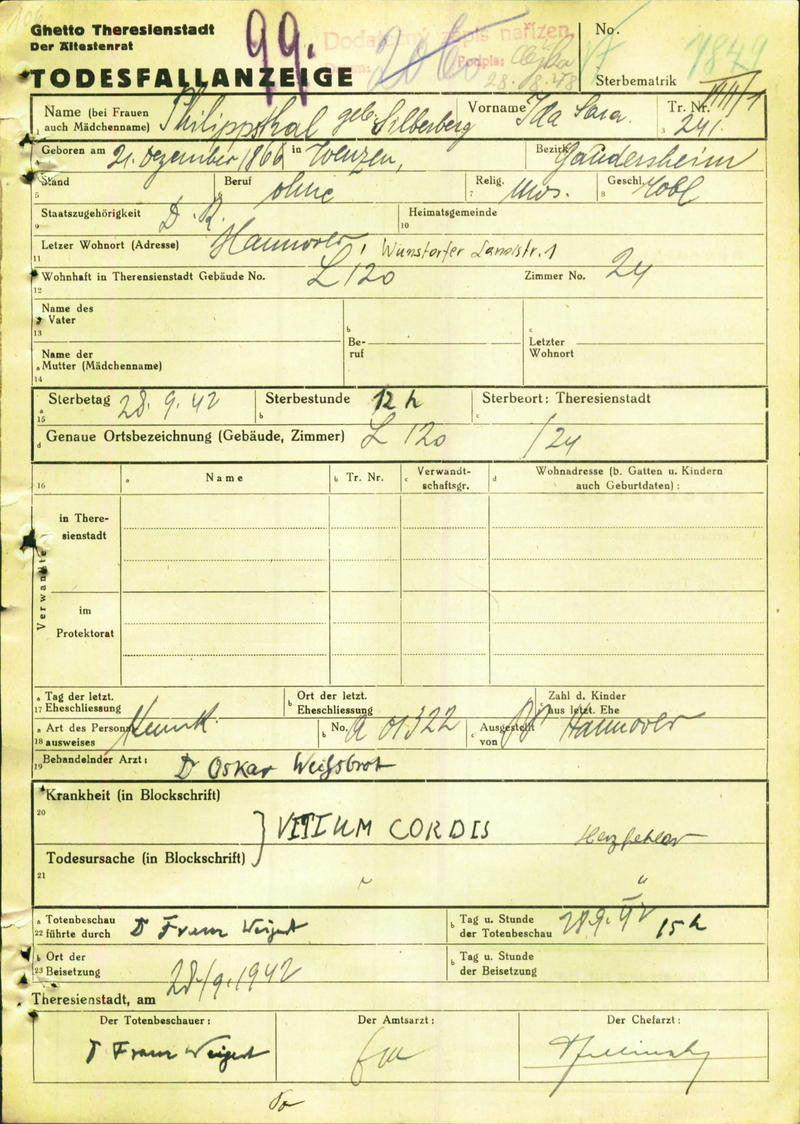 Ghetto Theresienstadt
Der Ältestenrat
TODESFALLANZEIGE
99.
Dodatečný zápis nařízen.
Podpis:
28. 8. 48
No.
1849
Sterbematrik
Name (bei Frauen auch Mädchenname) Philippsthal geb. Silberberg Vorname Ida Sara. Tr. Nr. VIII/1
1 3 241.
Geboren am 21. Dezember 1866 in Wenzen, Bezirk Gandersheim
Stand Beruf ohne Relig. mos. Geschl. weibl
5 6 7 8
Staatszugehörigkeit D. R. Heimatsgemeinde
9 10
Letzer Wohnort (Adresse) Hannover, Wunstorfer Landstr. 1
11
Wohnhaft in Theresienstadt Gebäude No. L 120 Zimmer No. 24
12
Name des Vater
13
b Beruf
c Letzter Wohnort
Name der Mutter (Mädchenname)
14
a Sterbetag 28. 9. 42 Sterbestunde 12 h Sterbeort: Theresienstadt
15 b c
d Genaue Ortsbezeichnung (Gebäude, Zimmer) L 120 /24
16 a Name b Tr. Nr. c Verwandtschaftsgr. d Wohnadresse (b. Gatten u. Kindern auch Geburtdaten) :
Verwandte
in Theresienstadt
im Protektorat
a Tag der letzt. Eheschliessung b Ort der letzt. Eheschliessung Zahl d. Kinder aus letzt. Ehe
17
a Art des Personalausweises Kennk. b No. A 01322 c Ausgestellt von Hannover
18
19 Behandelnder Arzt: Dr Oskar Weißbrot
Krankheit (in Blockschrift)
20
VITIUM CORDIS Herzfehler
Todesursache (in Blockschrift)
21
"
a Totenbeschau führte durch Dr Franz Weigert b Tag u. Stunde der Totenbeschau 28.9.42 15 h
22
b Ort der Beisetzung b Tag u. Stunde der Beisetzung
23
Theresienstadt, am 28/9.1942
Der Totenbeschauer: Der Amtsarzt: Der Chefarzt:
Dr Franz Weigert